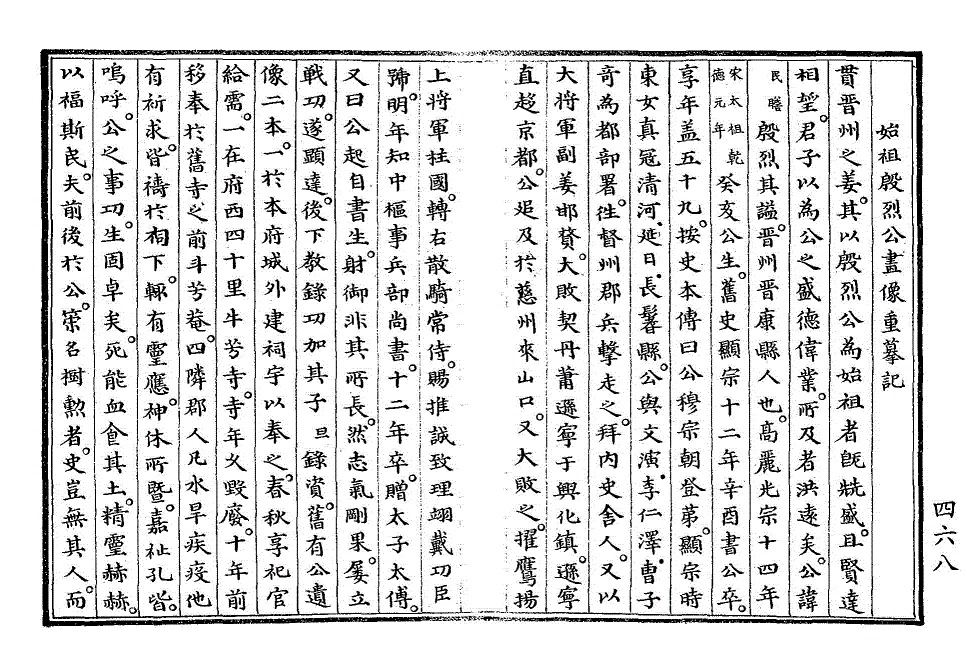 始祖殷烈公畫像重摹記
貫晋州之姜。其以殷烈公為始祖者旣㷡盛。且賢達
相望。君子以為公之盛德偉業。所及者洪遠矣。公諱
民瞻殷烈其謚。晋州晋康縣人也。高麗光宗十四年
宋太祖乾德元年癸亥公生。舊史顯宗十二年辛酉書公卒。
享年盖五十九。按史本傳曰公穆宗朝登第。顯宗時
東女真寇清河,延日,長鬐縣。公與文演,李仁澤,曹子
奇為都部署。徃督州郡兵擊走之。拜內史舍人。又以
大将軍副姜邯賛。大敗契丹蕭遜寧于興化鎮。遜寧
直趍京都。公追及於慈州來山口。又大敗之。擢鷹揚
上将軍柱國。轉右散騎常侍。賜推誠致理翊戴功臣
號。明年知中樞事兵部尚書。十二年卒。贈太子太傅。
又曰公起自書生。射御非其所長。然志氣剛果。屢立
戦功。遂顯達。後下敎錄功加其子旦錄資。舊有公遺
像二本。一於本府城外建祠宇以奉之。春秋享祀官
給需。一在府西四十里牛芳寺。寺年久毀廢。十年前
移奉於舊寺之前斗芳菴。四隣郡人凡水旱疾疫他
有祈求。皆禱於祠下。輒有靈應。神休所曁。嘉祉孔皆。
嗚呼。公之事功。生固卓矣。死能血食其土。精靈赫赫。
以福斯民夫。前後於公。策名樹勲者。史豈無其人。而
四六八